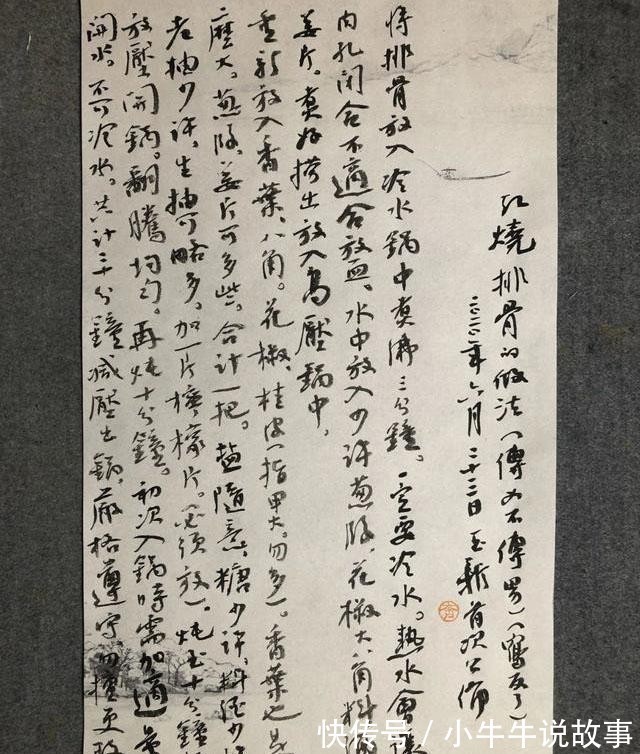 红燒排骨的做法（傳女不傳男）（寫反了）
年六月二十三日 首次公佈
将排骨放入冷水鍋中煮沸三分鐘。一定要冷水。熱水會
内孔闭合不適合放血。水中放入少许葱段、花椒大八角料
姜片。煮好捞出放入高壓鍋中，
重新放入香葉、八角。花椒、桂皮（指甲大。勿多）。香葉也是
麽大。葱段、姜片可多些。合计一把。盐隨意，糖少许，料酒少
老抽少许，生抽可略多。加一片檸檬片。（必须放）。炖至十分鐘
放壓開鍋。翻騰均匀。再炖十分鐘。初次入鍋時需加適量
開水。不可冷水。共计三十分鐘，减壓出鍋。嚴格遵守，勿擅更改
快传号 / 小牛牛说故事